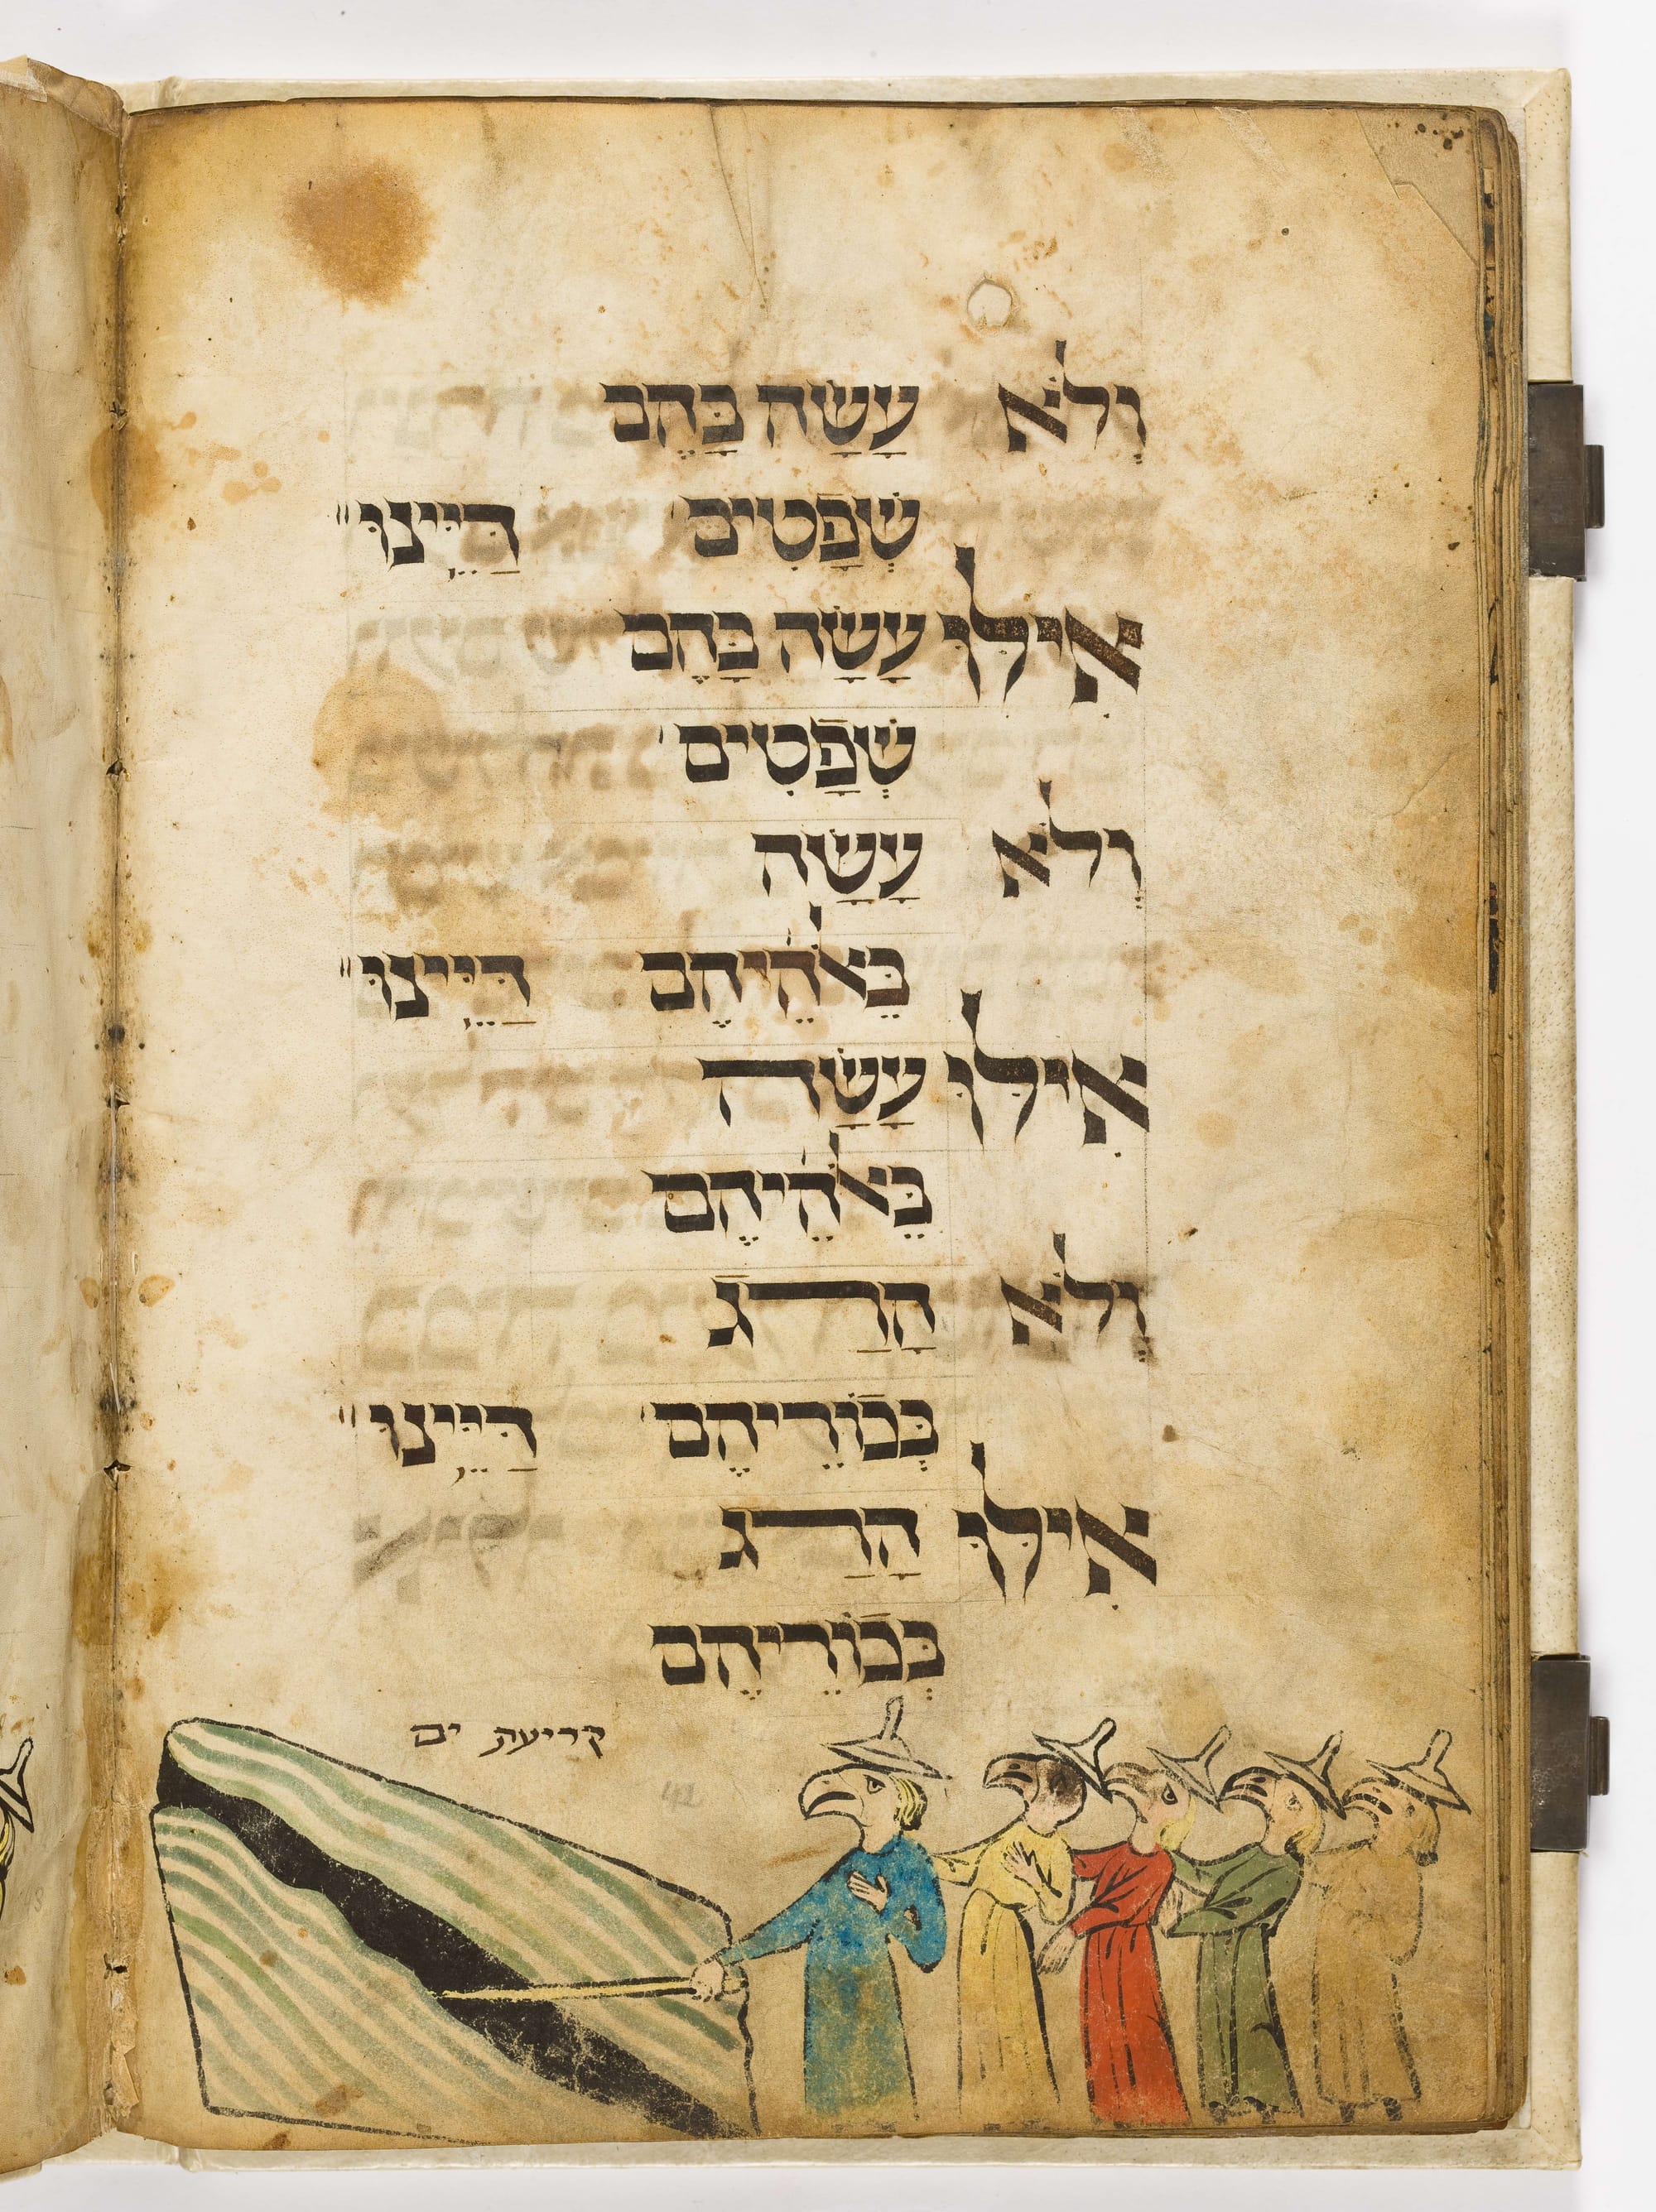 וְלֹא עָשָׂה בָּהֶם
שְׁפָטִים׳ דַּיֵּינוּ״
אִילּוּ עָשָׂה בָּהֶם
שְׁפָטִים׳
וְלֹא עָשָׂה
בֵּאלֹהֵיהֶם דַּיֵּינוּ״
אִילּוּ עָשָׂה
בֵּאלֹהֵיהֶם
וְלֹא הָרַג
בְּכוֹרֵיהֶם׳ דַּיֵּינוּ״
אִילּוּ הָרַג
בְּכוֹרֵיהֶם
קריעת ים